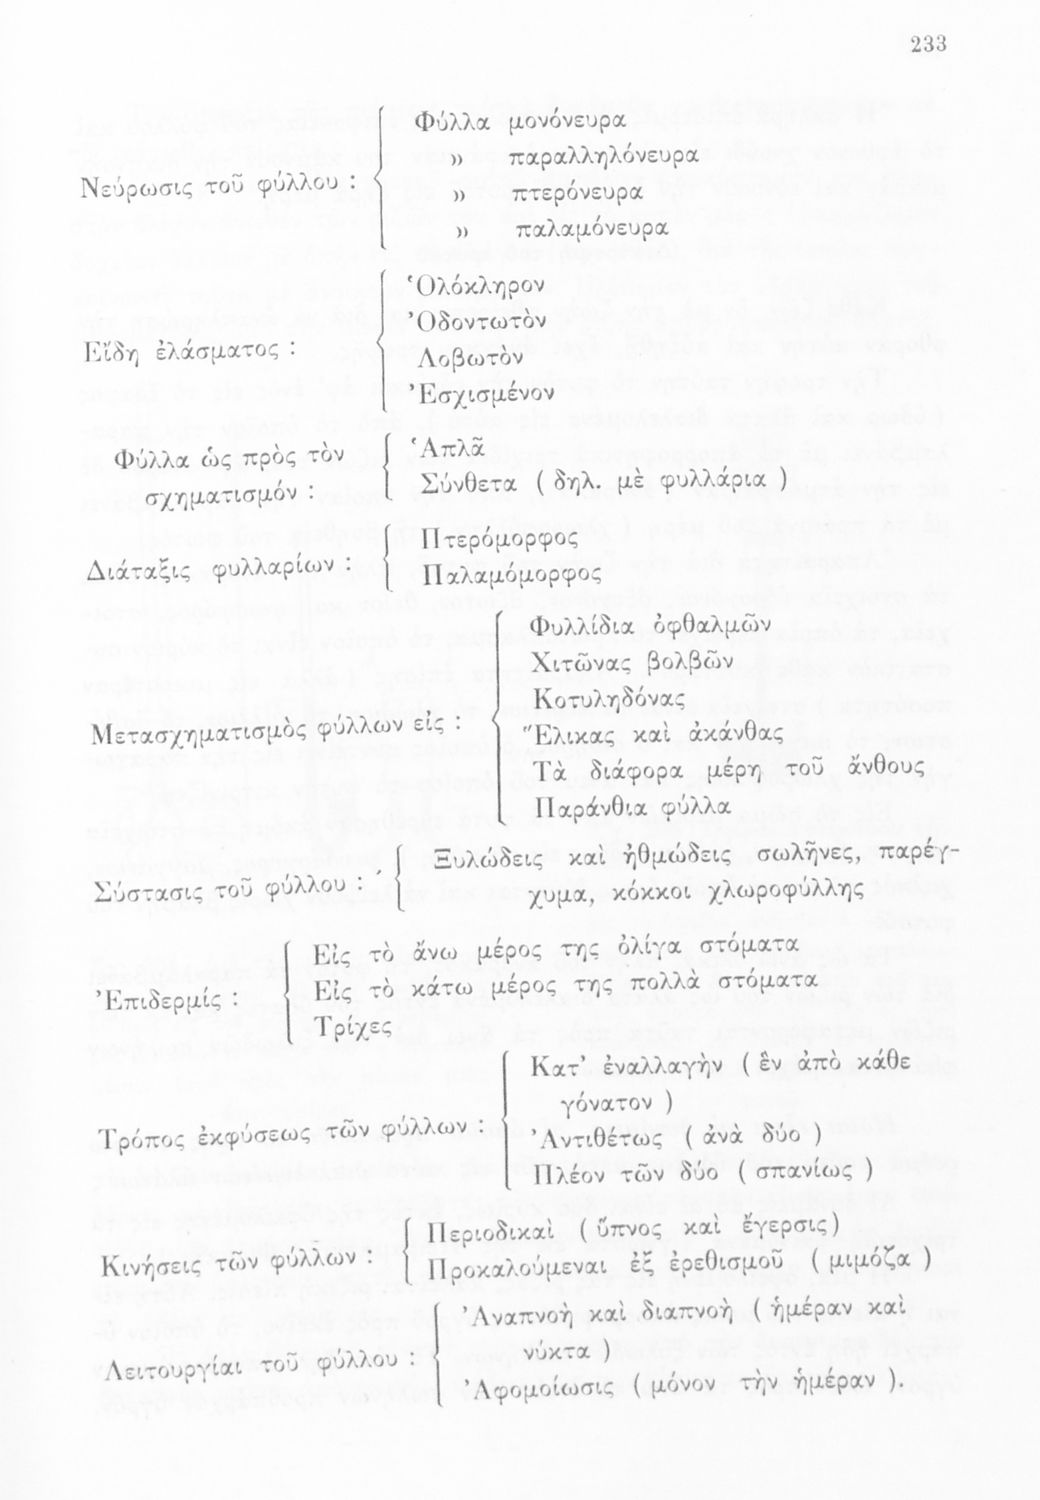 233
Φύλλα μονόνευρα
» παραλληλόνευρα
Νεύρωσις τοῦ φύλλου :
» πτερόνευρα
» παλαμόνευρα
Ὁλόκληρον
Ὀδοντωτὸν
Εἴδη ἐλάσματος :
Λοβωτὸν
Ἐσχισμένον
Φύλλα ὡς πρὸς τὸν
σχηματισμόν :
Ἁπλᾶ
Σύνθετα ( δηλ. μὲ φυλλάρια )
Διάταξις φυλλαρίων :
Πτερόμορφος
Παλαμόμορφος
Μετασχηματισμὸς φύλλων εἰς :
Φυλλίδια ὀφθαλμῶν
Χιτῶνας βολβῶν
Κοτυληδόνας
Ἕλικας καὶ ἀκάνθας
Τὰ διάφορα μέρη τοῦ ἄνθους
Παράνθια φύλλα
Σύστασις τοῦ φύλλου :
Ξυλώδεις καὶ ἠθμώδεις σωλῆνες, παρέγ-
χυμα, κόκκοι χλωροφύλλης
Ἐπιδερμίς :
Εἰς τὸ ἄνω μέρος της ὀλίγα στόματα
Εἰς τὸ κάτω μέρος της πολλὰ στόματα
Τρίχες
Τρόπος ἐκφύσεως τῶν φύλλων :
Κατ’ ἐναλλαγὴν ( ἓν ἀπὸ κάθε
γόνατον )
Ἀντιθέτως ( ἀνὰ δύο )
Πλέον τῶν δύο ( σπανίως )
Κινήσεις τῶν φύλλων :
Περιοδικαὶ ( ὕπνος καὶ ἔγερσις)
Προκαλούμεναι ἐξ ἐρεθισμοῦ ( μιμόζα )
Λειτουργίαι τοῦ φύλλου :
Ἀναπνοὴ καὶ διαπνοὴ ( ἡμέραν καὶ
νύκτα )
Ἀφομοίωσις ( μόνον τὴν ἡμέραν ).